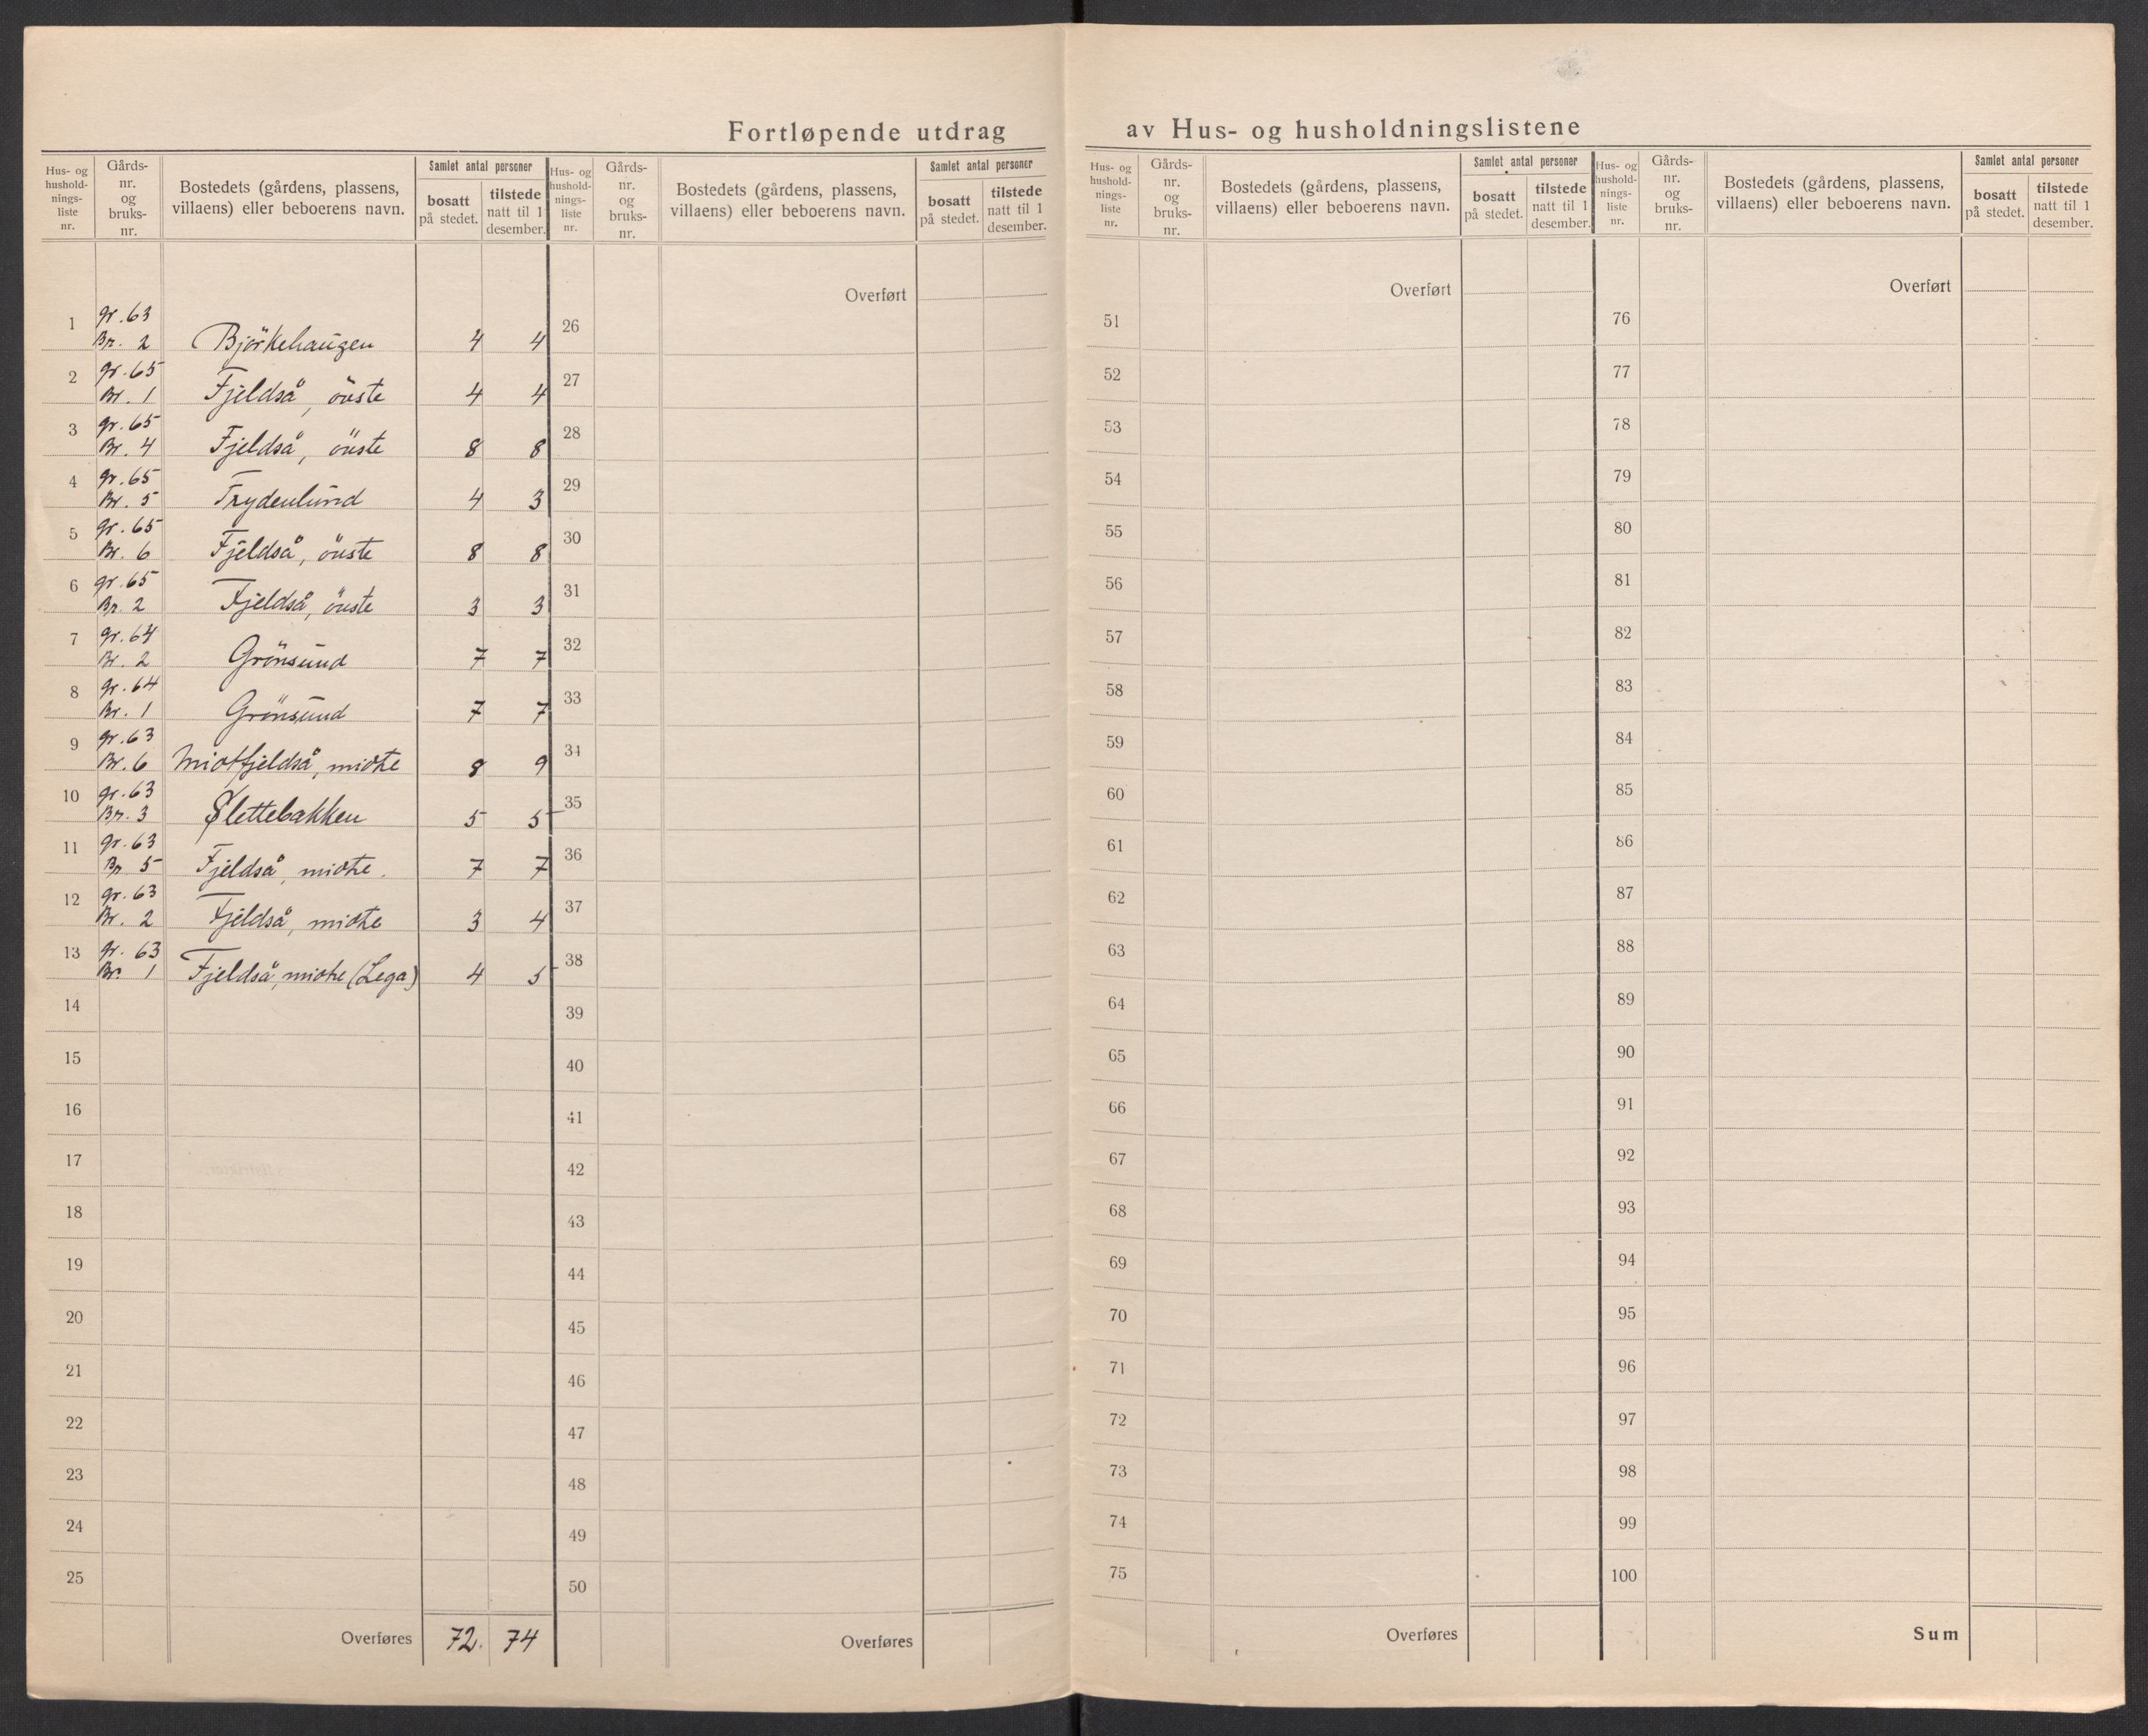 Fortløpende utdrag av Hus- og husholdningslistene
Hus- og husholdnings-liste nr. | Gårds-nr. og bruks-nr. | Bostedets (gårdens, plassens, villaens) eller beboerens navn. | Samlet antal personer | bosatt på stedet. | tilstede natt til 1 desember.
1 gr. 63 Br. 2 Björkehaugen 4 4
2 gr. 65 Br. 1 Fjeldså, övste 4 4
3 gr. 65 Br. 4 Fjeldså, övste 8 8
4 gr. 65 Br. 5 Frydenlund 4 3
5 gr. 65 Br. 6 Fjeldså, övste 8 8
6 gr. 65 Br. 2 Fjeldså, övste 3 3
7 gr. 64 Br. 2 Grönsund 7 7
8 gr. 64 Br. 1 Grönsund 7 7
9 gr. 63 Br. 6 Midtfjeldså, midtre 8 9
10 gr. 63 Br. 3 Slettebakken 5 5
11 gr. 63 Br. 5 Fjeldså, midtre. 7 7
12 gr. 63 Br. 2 Fjeldså, midtre 3 4
13 gr. 63 Br. 1 Fjeldså, midtre (Lega) 4 5
14
15
16
17
18
19
20
21
22
23
24
25
Overføres 72. 74
Hus- og husholdnings-liste nr. | Gårds-nr. og bruks-nr. | Bostedets (gårdens, plassens, villaens) eller beboerens navn. | Samlet antal personer | bosatt på stedet. | tilstede natt til 1 desember.
Overført
26
27
28
29
30
31
32
33
34
35
36
37
38
39
40
41
42
43
44
45
46
47
48
49
50
Overføres
Hus- og husholdnings-liste nr. | Gårds-nr. og bruks-nr. | Bostedets (gårdens, plassens, villaens) eller beboerens navn. | Samlet antal personer | bosatt på stedet. | tilstede natt til 1 desember.
Overført
51
52
53
54
55
56
57
58
59
60
61
62
63
64
65
66
67
68
69
70
71
72
73
74
75
Overføres
Hus- og husholdnings-liste nr. | Gårds-nr. og bruks-nr. | Bostedets (gårdens, plassens, villaens) eller beboerens navn. | Samlet antal personer | bosatt på stedet. | tilstede natt til 1 desember.
Overført
76
77
78
79
80
81
82
83
84
85
86
87
88
89
90
91
92
93
94
95
96
97
98
99
100
Sum